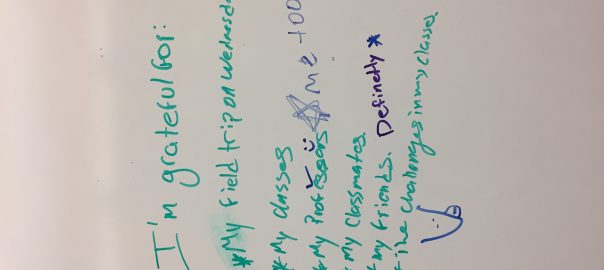 I'm grateful for:
*My Field trip on Wednesd
* My classes
* My Professors ☆ Me too
* My Classmates
* my Friends. Definetly *
* The challenges in my classes